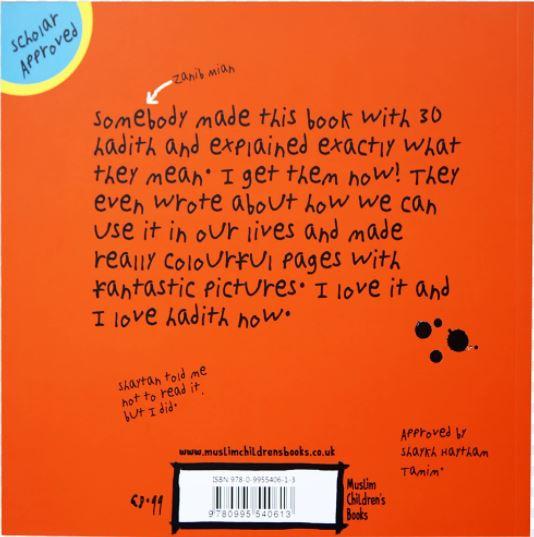 Scholar
Approved
Zanib Mian
Somebody made this book with 30
hadith and explained exactly what
they mean. I get them now! They
even wrote about how we can
use it in our lives and made
really colourful pages with
fantastic pictures. I love it and
I love hadith now.
Shaytan told me
not to read it,
but I did.
Approved by
Shaykh Haytham
Tamim.
www.muslimchildrensbooks.co.uk
ISBN 978-0-9955406-1-3
9 780995 540613
Muslim
Children's
Books